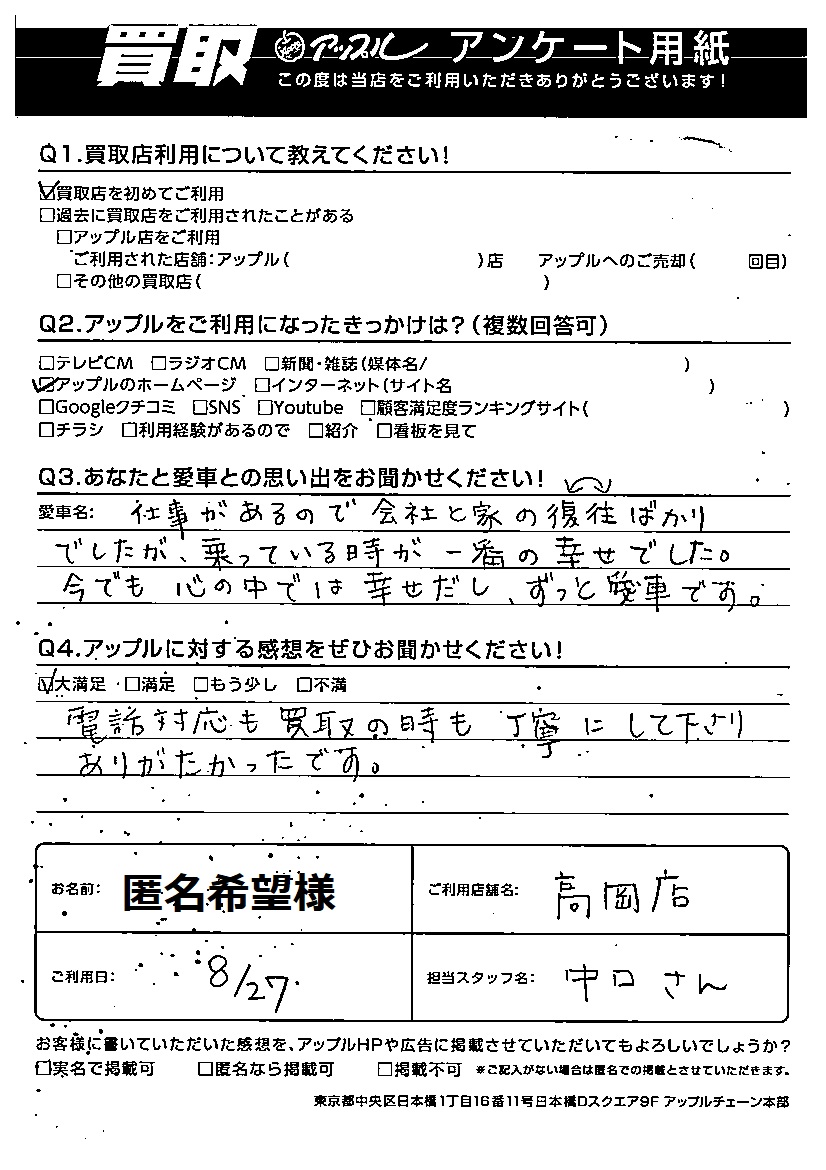 買取 アップル アンケート用紙
この度は当店をご利用いただきありがとうございます!
Q1.買取店利用について教えてください!
☑買取店を初めてご利用
□過去に買取店をご利用されたことがある
□アップル店をご利用
ご利用された店舗:アップル( )店 アップルへのご売却( 回目)
□その他の買取店( )
Q2.アップルをご利用になったきっかけは?(複数回答可)
□テレビCM □ラジオCM □新聞・雑誌(媒体名/ )
☑アップルのホームページ □インターネット(サイト名 )
□Googleクチコミ □SNS □Youtube □顧客満足度ランキングサイト( )
□チラシ □利用経験があるので □紹介 □看板を見て
Q3.あなたと愛車との思い出をお聞かせください!
愛車名: 仕事があるので会社と家の復往ばかり
でしたが、乗っている時が一番の幸せでした。
今でも心の中では幸せだし、ずっと愛車です。
Q4.アップルに対する感想をぜひお聞かせください!
☑大満足 □満足 □もう少し □不満
電話対応も買取の時も丁寧にして下さり
ありがたかったです。
お名前: 匿名希望様 ご利用店舗名: 高岡店
ご利用日: 8/27 担当スタッフ名: 中口さん
お客様に書いていただいた感想を、アップルHPや広告に掲載させていただいてもよろしいでしょうか?
□実名で掲載可 □匿名なら掲載可 □掲載不可 ※ご記入がない場合は匿名での掲載とさせていただきます。
東京都中央区日本橋1丁目16番11号日本橋Dスクエア9F アップルチェーン本部